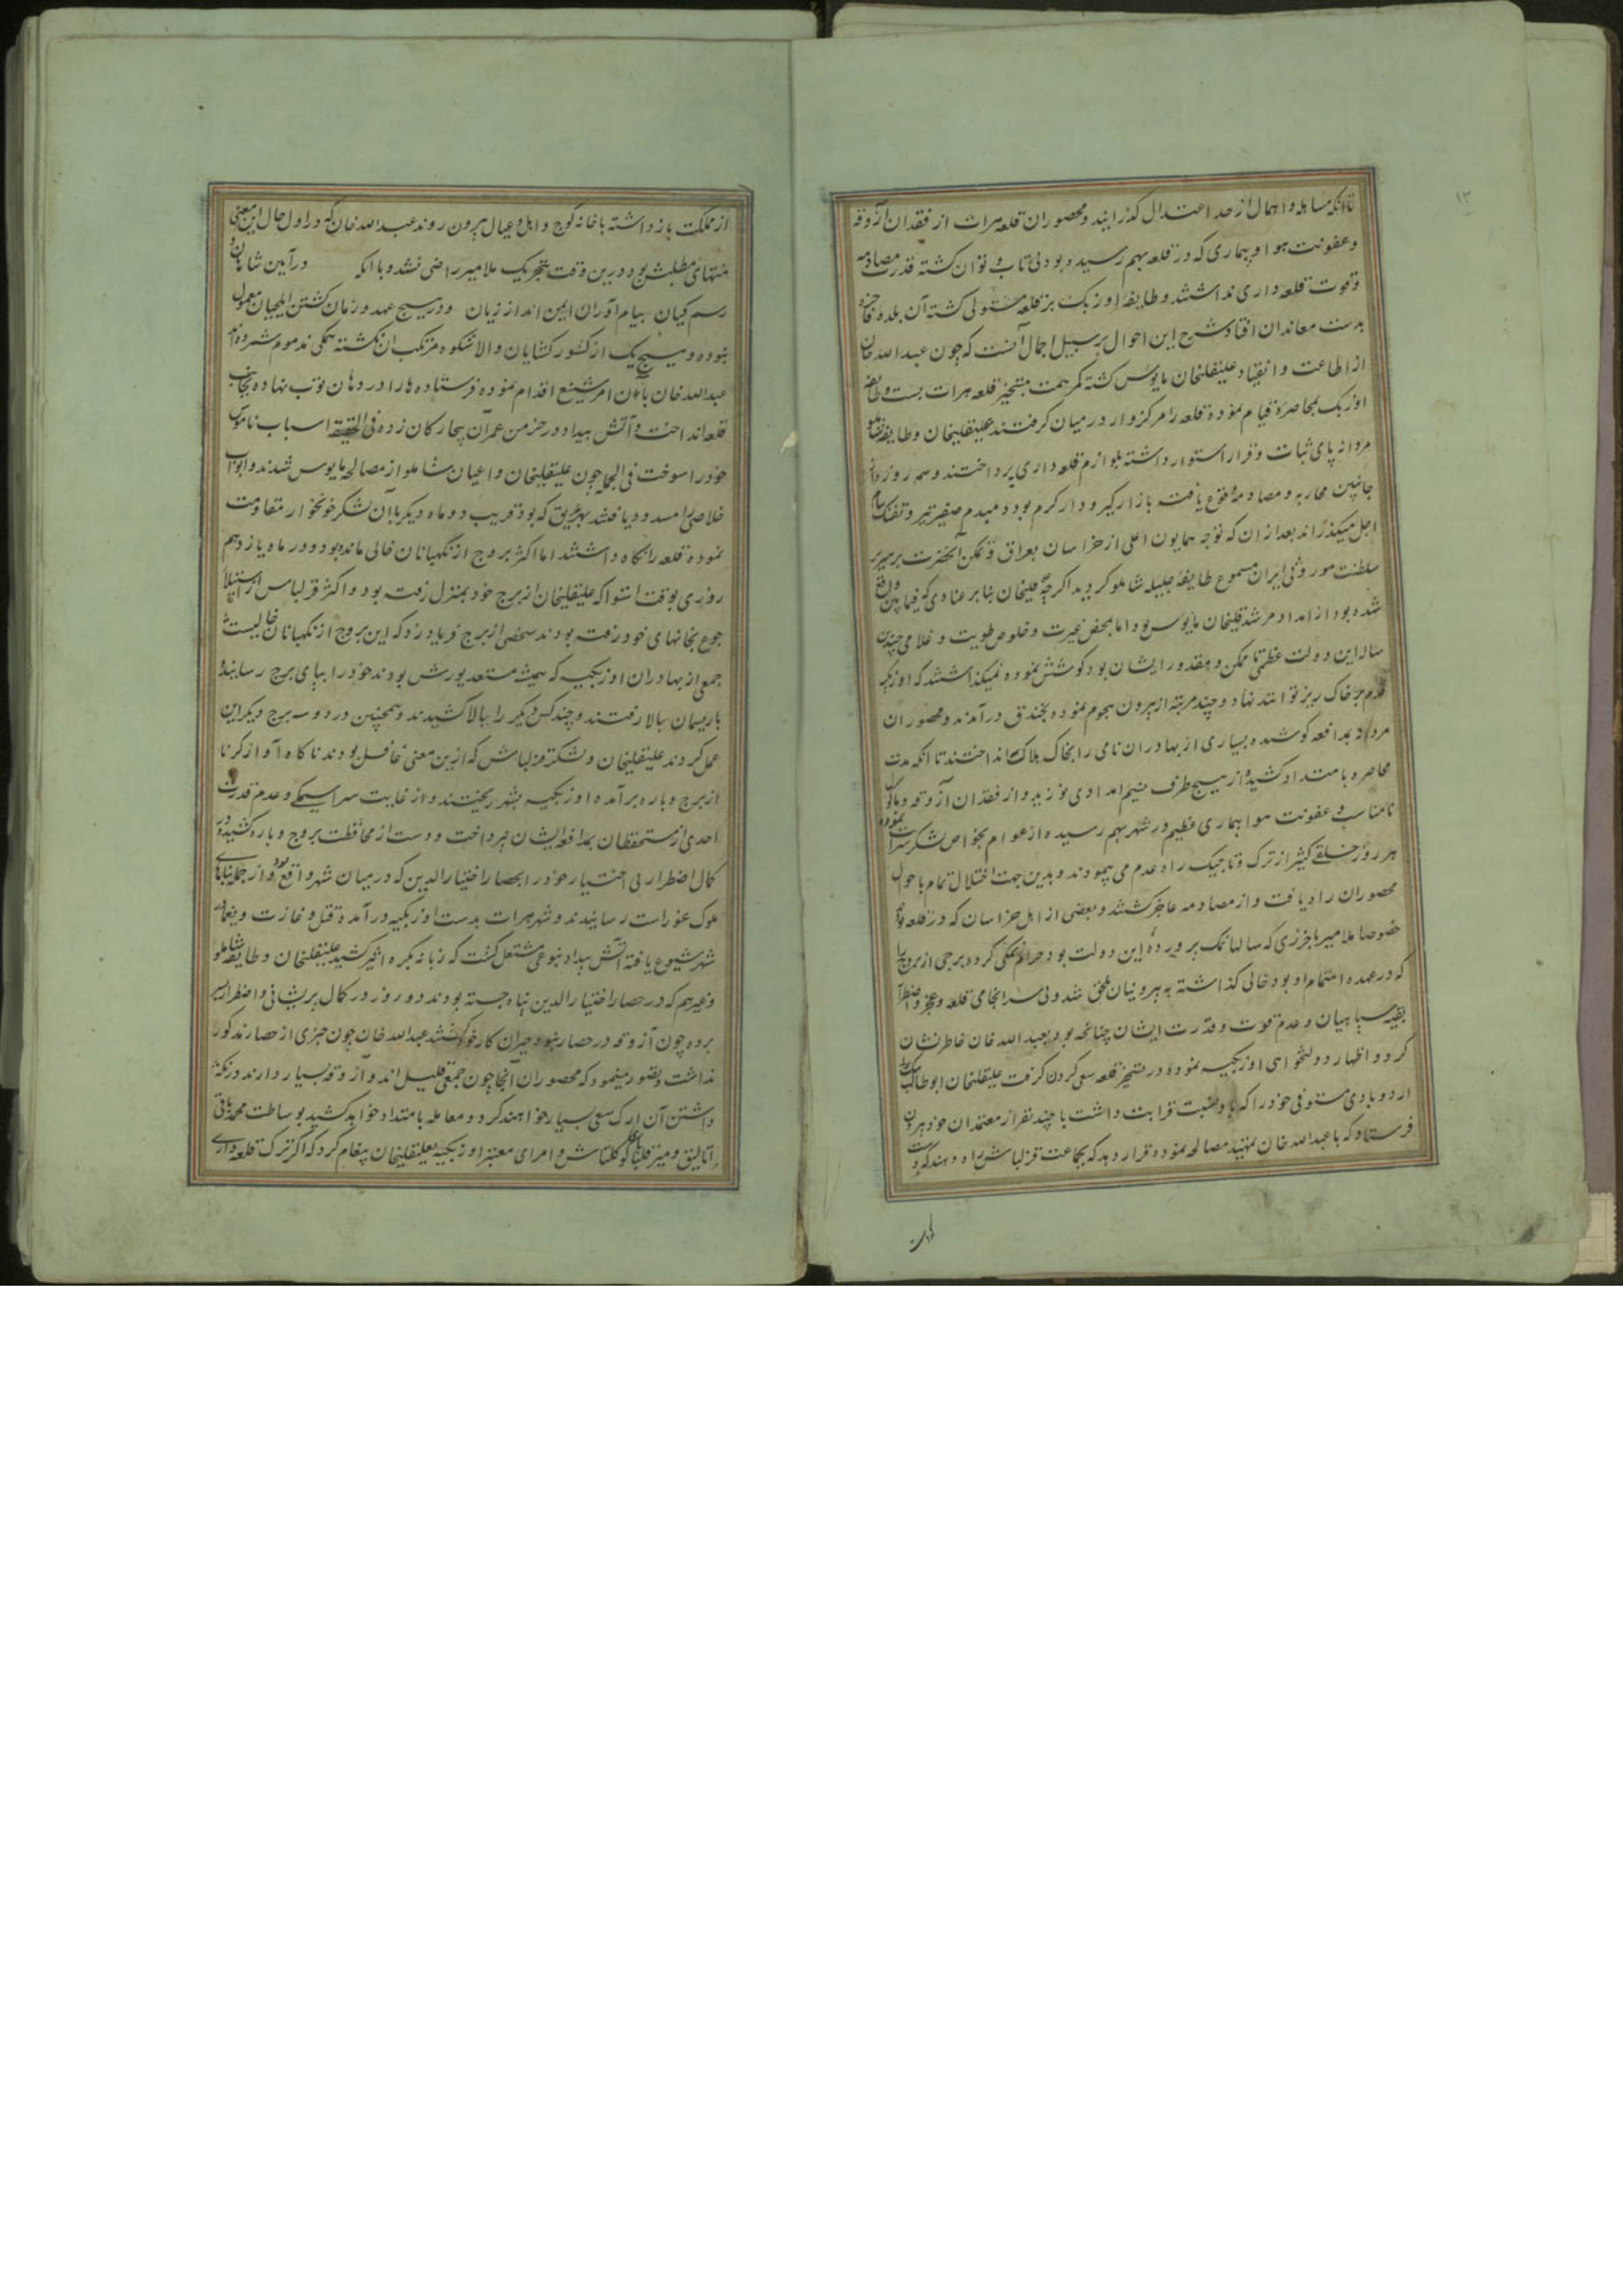 ۱۳
تا آنکه مساهله و اهمال از حد اعتدال گذرانید و محصوران قلعه هرات از فقدان آزوقه
و عفونت هوا و بیماری که در قلعه بهم رسیده بود بی تاب و توان گشته قدرت مصادمه
و قوت قلعه داری نداشتند و طایفه اوزبک بر قلعه مستولی گشته آن بلده فاخره
بدست معاندان افتاد شرح این احوال بر سبیل اجمال آنست که چون عبدالله خان
از اطاعت و انقیاد علیقلیخان مایوس گشته کمر همت بتسخیر قلعه هرات بست و طایفه
اوزبک بمحاصره قیام نموده قلعه را مرکزوار در میان گرفتند علیقلیخان و طایفه شاملو
مردانه پای ثبات و قرار استوار داشته بلوازم قلعه داری پرداختند و همه روزه از
جانبین محاربه و مصادمه وقوع یافت بازار گیر و دار گرم بود و مبدم صفیر تیر و تفنک پیام
اجل میگذراند بعد از ان که توجه همایون اعلی از خراسان بعراق و تمکن آنحضرت بر سریر
سلطنت موروثی ایران مسموع طایفه جلیله شاملو گردید اگرچه علیقلیخان بنابر عنادی که فیمابین واقع
شده بود از امداد مرشدقلیخان مایوس بود اما بمحض غیرت و خلوص طویت و غلامی چندین
ساله این دولت عظمی تا ممکن و مقدور ایشان بود کوشش نموده نمیگذاشتند که اوزبکیه
قدم بر خاک ریز توانند نهاد و چند مرتبه از بیرون هجوم نموده بخندق درآمدند و محصوران
مردانه بمدافعه کوشیده بسیاری از بهادران نامی را بخاک هلاک انداختند تا آنکه مدت
محاصره بامتداد کشیده از هیچ طرف نسیم امدادی نوزید و از فقدان آزوقه و ماکول
نامناسب و عفونت هوا بیماری عظیم در شهر بهم رسیده از عوام بخواص لشکر سرایت نموده
هر روز خلقی کثیر از ترک و تاجیک راه عدم می پیمودند و بدین جهت اختلال تمام باحوال
محصوران راه یافت و از مصادمه عاجز گشتند و بعضی از اهل خراسان که در قلعه بودند
خصوصا ملا میر باخرزی که سالها نمک پرورده این دولت بود حرام نمکی کرده برجی از بروج را
که در عهده اهتمام او بود خالی گذاشته به بیرونیان ملحق شد و بی سرانجامی قلعه و عجز و اضطرار
بقیه سپاهیان و عدم قوت و قدرت ایشان چنانچه بود بعبدالله خان خاطرنشان
کرد و اظهار دولتخواهی اوزبکیه نموده در تسخیر قلعه سعی کردن گرفت علیقلیخان ابوطالب بیک
اردوبادی مستوفی خود را که باو نسبت قرابت داشت با چند نفر از معتمدان خود بیرون
فرستاد که با عبدالله خان تمهید مصالحه نموده قرار دهد که بجماعت قزلباش راه دهند که دست
از مملکت باز داشته با خانه کوچ و اهل و عیال بیرون روند عبدالله خان که در اول حال این معنی
منتهای مطلبش بود درین وقت بتحریک ملا میر راضی نشد و با آنکه در آیین شاهان و
رسم کیان پیام آوران ایمن اند از زیان و در هیچ عهد و زمان کشتن ایلچیان معمول
نبوده و هیچ یک از کشور گشایان والاشکوه مرتکب آن نگشته همگی مذموم شمرده اند
عبدالله خان بآن امر شنیع اقدام نموده فرستاده ها را در دهان توپ نهاده بجانب
قلعه انداخت و آتش بیداد در خرمن عمر آن بیچارگان زده فی الحقیقه اسباب ناموس
خود را سوخت فی الجمله چون علیقلیخان و اعیان شاملو از مصالحه مایوس شدند و ابواب
خلاصی را مسدود یافتند بهر طریق که بود قریب دو ماه دیگر با آن لشکر خونخوار مقاومت
نموده قلعه را نگاه داشتند اما اکثر بروج از نگهبانان خالی مانده بود و در ماه یازدهم
روزی بوقت استوا که علیقلیخان از برج خود بمنزل رفته بود و اکثر قزلباش از استیلای
جوع بخانهای خود رفته بودند شخصی از برج فریاد زد که این بروج از نگهبانان خالیست
جمعی از بهادران اوزبکیه که همیشه مستعد یورش بودند خود را بپای برج رسانیده
باریسمان بالا رفتند و چند کس دیگر را ببالا کشیدند و همچنین در دو سه برج دیگر این
عمل کردند علیقلیخان و لشکر قزلباش که ازین معنی غافل بودند ناگاه آواز کرنا
از برج و باره برآمده اوزبکیه بشهر ریختند و از غایت سراسیمگی و عدم قدرت
احدی از مستحفظان بمدافعه ایشان نپرداخت و دست از محافظت بروج و باره کشیده در
کمال اضطرار بی اختیار خود را بحصار اختیارالدین که در میان شهر واقع بود و از جمله بناهای
ملوک غور است رسانیدند و شهر هرات بدست اوزبکیه درآمده قتل و غارت و یغما در
شهر شیوع یافته آتش بیداد بنوعی مشتعل گشت که زبانه بکره اثیر کشید علیقلیخان و طایفه شاملو
و غیرهم که در حصار اختیارالدین پناه جسته بودند دو روز در کمال پریشانی و اضطرار بسر
برده چون آزوقه در حصار نبود حیران کار خود گشتند عبدالله خان چون خبری از حصار مذکور
نداشت و تصور مینمود که محصوران آنجا چون جمعی قلیل اند و آزوقه بسیار دارند در نگه
داشتن آن ارک سعی بسیار خواهند کرد و معامله بامتداد خواهد کشید بوساطت محمد باقی
اتالیق و میر قلبابا کوکلتاش و امرای معتبر اوزبکیه بعلیقلیخان پیغام کرد که اگر ترک قلعه داری